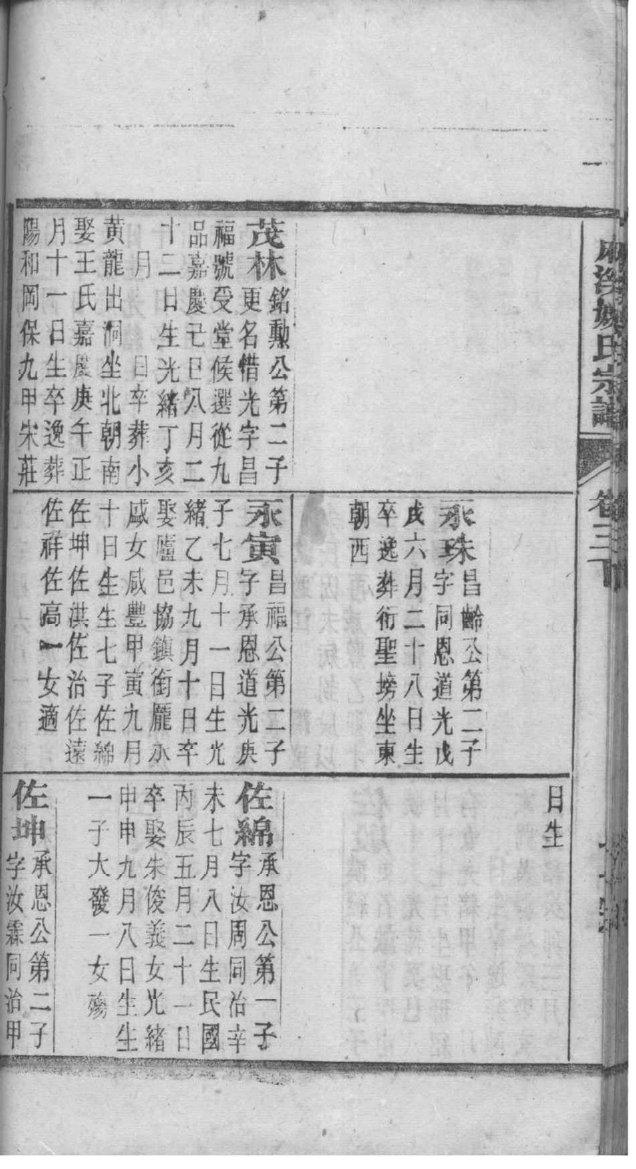 姚氏宗譜
卷三
茂林
銘勳公第二子
更名惜光字昌
福號受堂候選從九
品嘉慶己巳八月二
十二日生光緒丁亥
月　日卒葬小
黃龍出洞坐北朝南
娶王氏嘉慶庚午正
月十一日生卒逸葬
陽和岡保九甲宋莊
永珠
昌齡公第二子
字同恩道光戊
戌六月二十八日生
卒逸葬衍聖塝坐東
朝西
永寅
昌福公第二子
字承恩道光庚
子七月十一日生光
緒乙未九月十日卒
娶臚邑協鎮銜龐永
咸女咸豐甲寅九月
十日生生七子佐綿
佐坤佐淇佐治佐遠
佐祥佐高一女適
日生
佐綿
承恩公第一子
字汝周同治辛
未七月八日生民國
丙辰五月二十一日
卒娶朱俊義女光緒
甲申九月八日生生
一子大發一女殤
佐坤
承恩公第二子
字汝霖同治甲